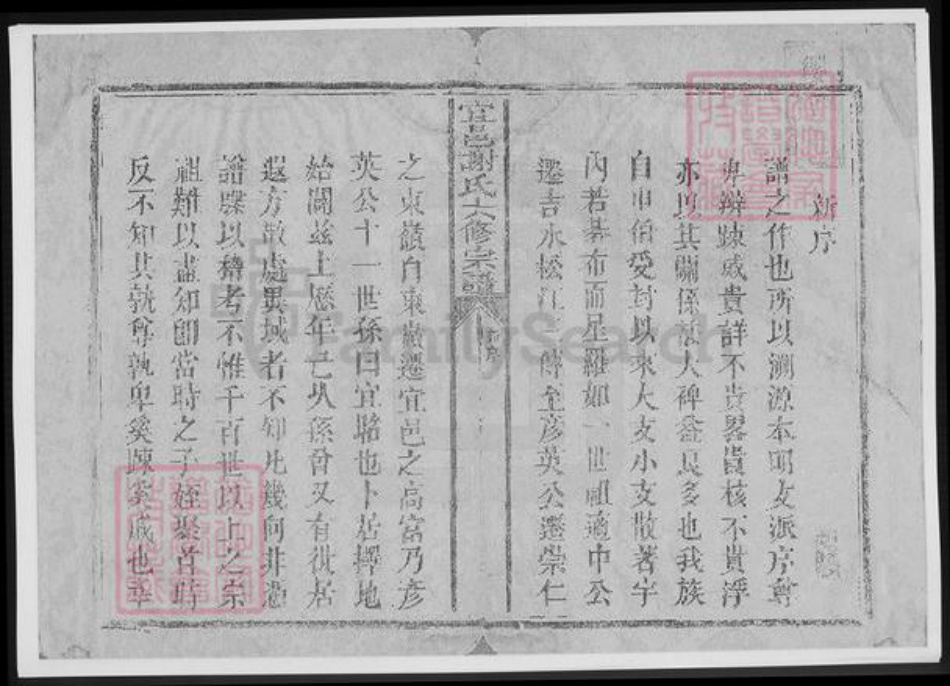 新序
譜之作也所以溯源本明支派序尊
卑辨踈戚貴詳不貴畧貴核不貴浮
亦以其關係甚大裨益良多也我族
自申伯受封以來大支小支散著宇
內若碁布而星羅如一世祖適中公
遷吉水松江三傳至彥英公遷崇仁
宜邑謝氏六修宗譜
新序
之東嶺自東嶺遷宜邑之高富乃彥
英公十一世孫曰宜璐也卜居擇地
始闢茲土歷年已久孫曾又有徙居
遐方散處異域者不知凡幾向非憑
譜牒以稽考不惟千百世以上之宗
祖難以盡知卽當時之子姪聚首時
反不知其孰尊孰卑奚踈奚戚也幸
FamilySearch